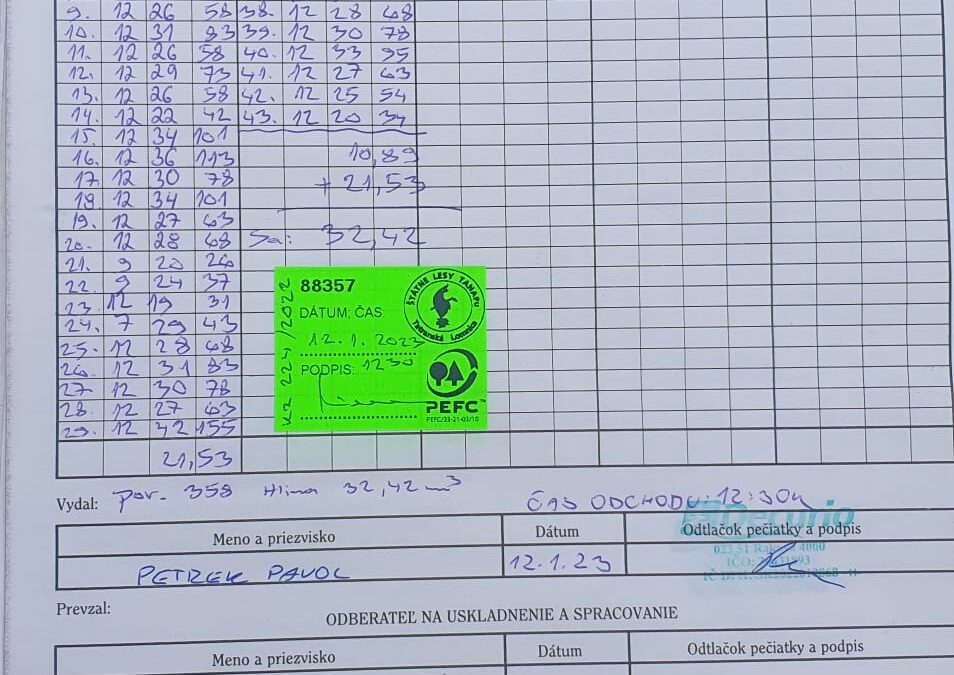 9. 12 26 58 38. 12 28 68
10. 12 31 83 39. 12 30 78
11. 12 26 58 40. 12 33 95
12. 12 29 73 41. 12 27 63
13. 12 26 58 42. 12 25 54
14. 12 22 42 43. 12 20 34
15. 12 34 101
16. 12 36 113 10,89
17. 12 30 78 + 21,53
18 12 34 101
19. 12 27 63
20. 12 28 68 Sa: 32,42
21. 9 20 26
22. 9 24 37
23 12 19 31
24. 7 29 43
25. 12 28 68
26. 12 31 83
27. 12 30 78
28. 12 27 63
29. 12 42 155
21,53
88357
DÁTUM, ČAS:
12.1.2023
PODPIS: 1230
224/2022
ŠTÁTNE LESY TANAPU
Tatranská Lomnica
PEFC™
PEFC/23-21-03/10
Vydal: por. 358 32,42 m³
ČAS ODCHODU: 12:30h
Meno a priezvisko Dátum Odtlačok pečiatky a podpis
Decurio
PETREK PAVOL 12.1.23
Prevzal:
ODBERATEĽ NA USKLADNENIE A SPRACOVANIE
Meno a priezvisko Dátum Odtlačok pečiatky a podpis